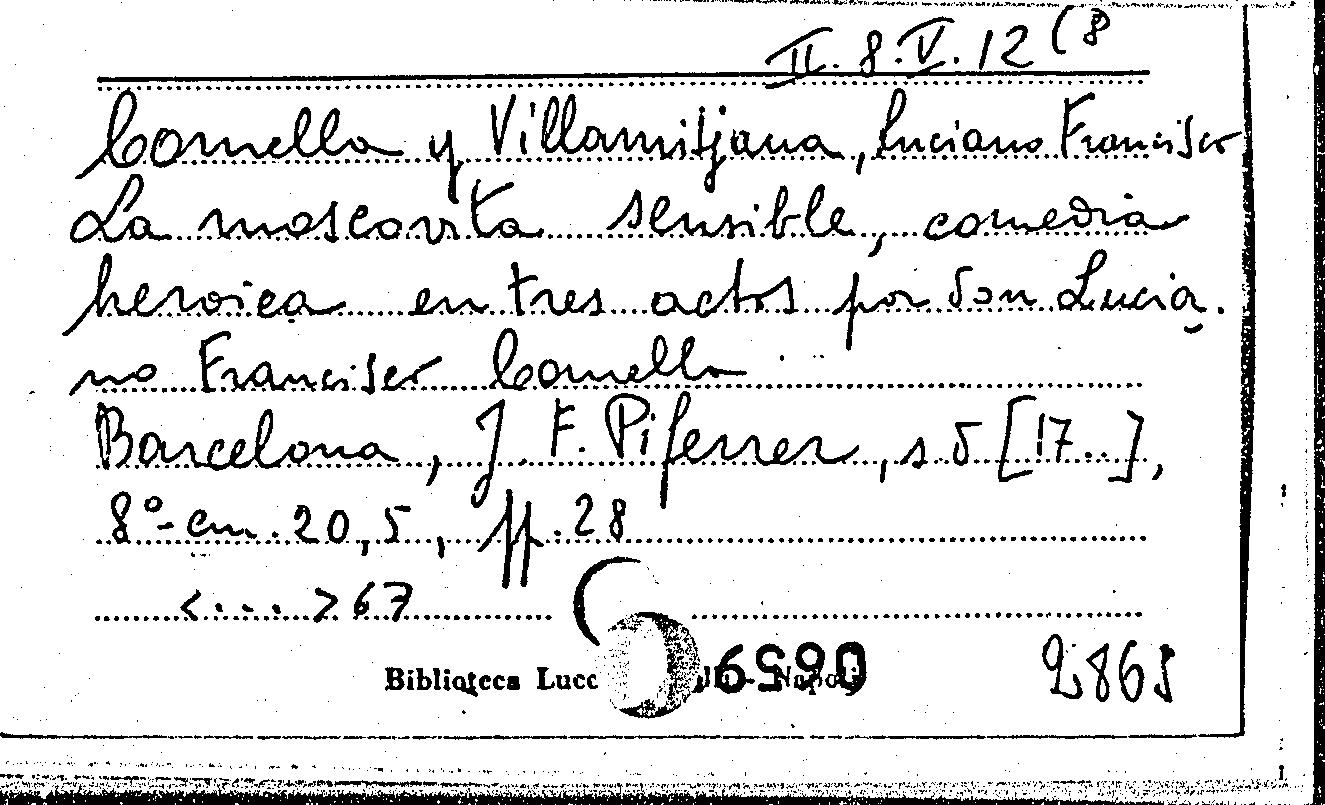 II. 8. V. 12 (8
Comella y Villamitjana, Luciano Francisco
La moscovita sensible, comedia
heroica en tres actos por don Lucia-
no Francisco Comella
Barcelona, J. F. Piferrer, s d [17..],
8º- cm. 20,5, pp. 28
<...> 67
Biblioteca Lucc
2865